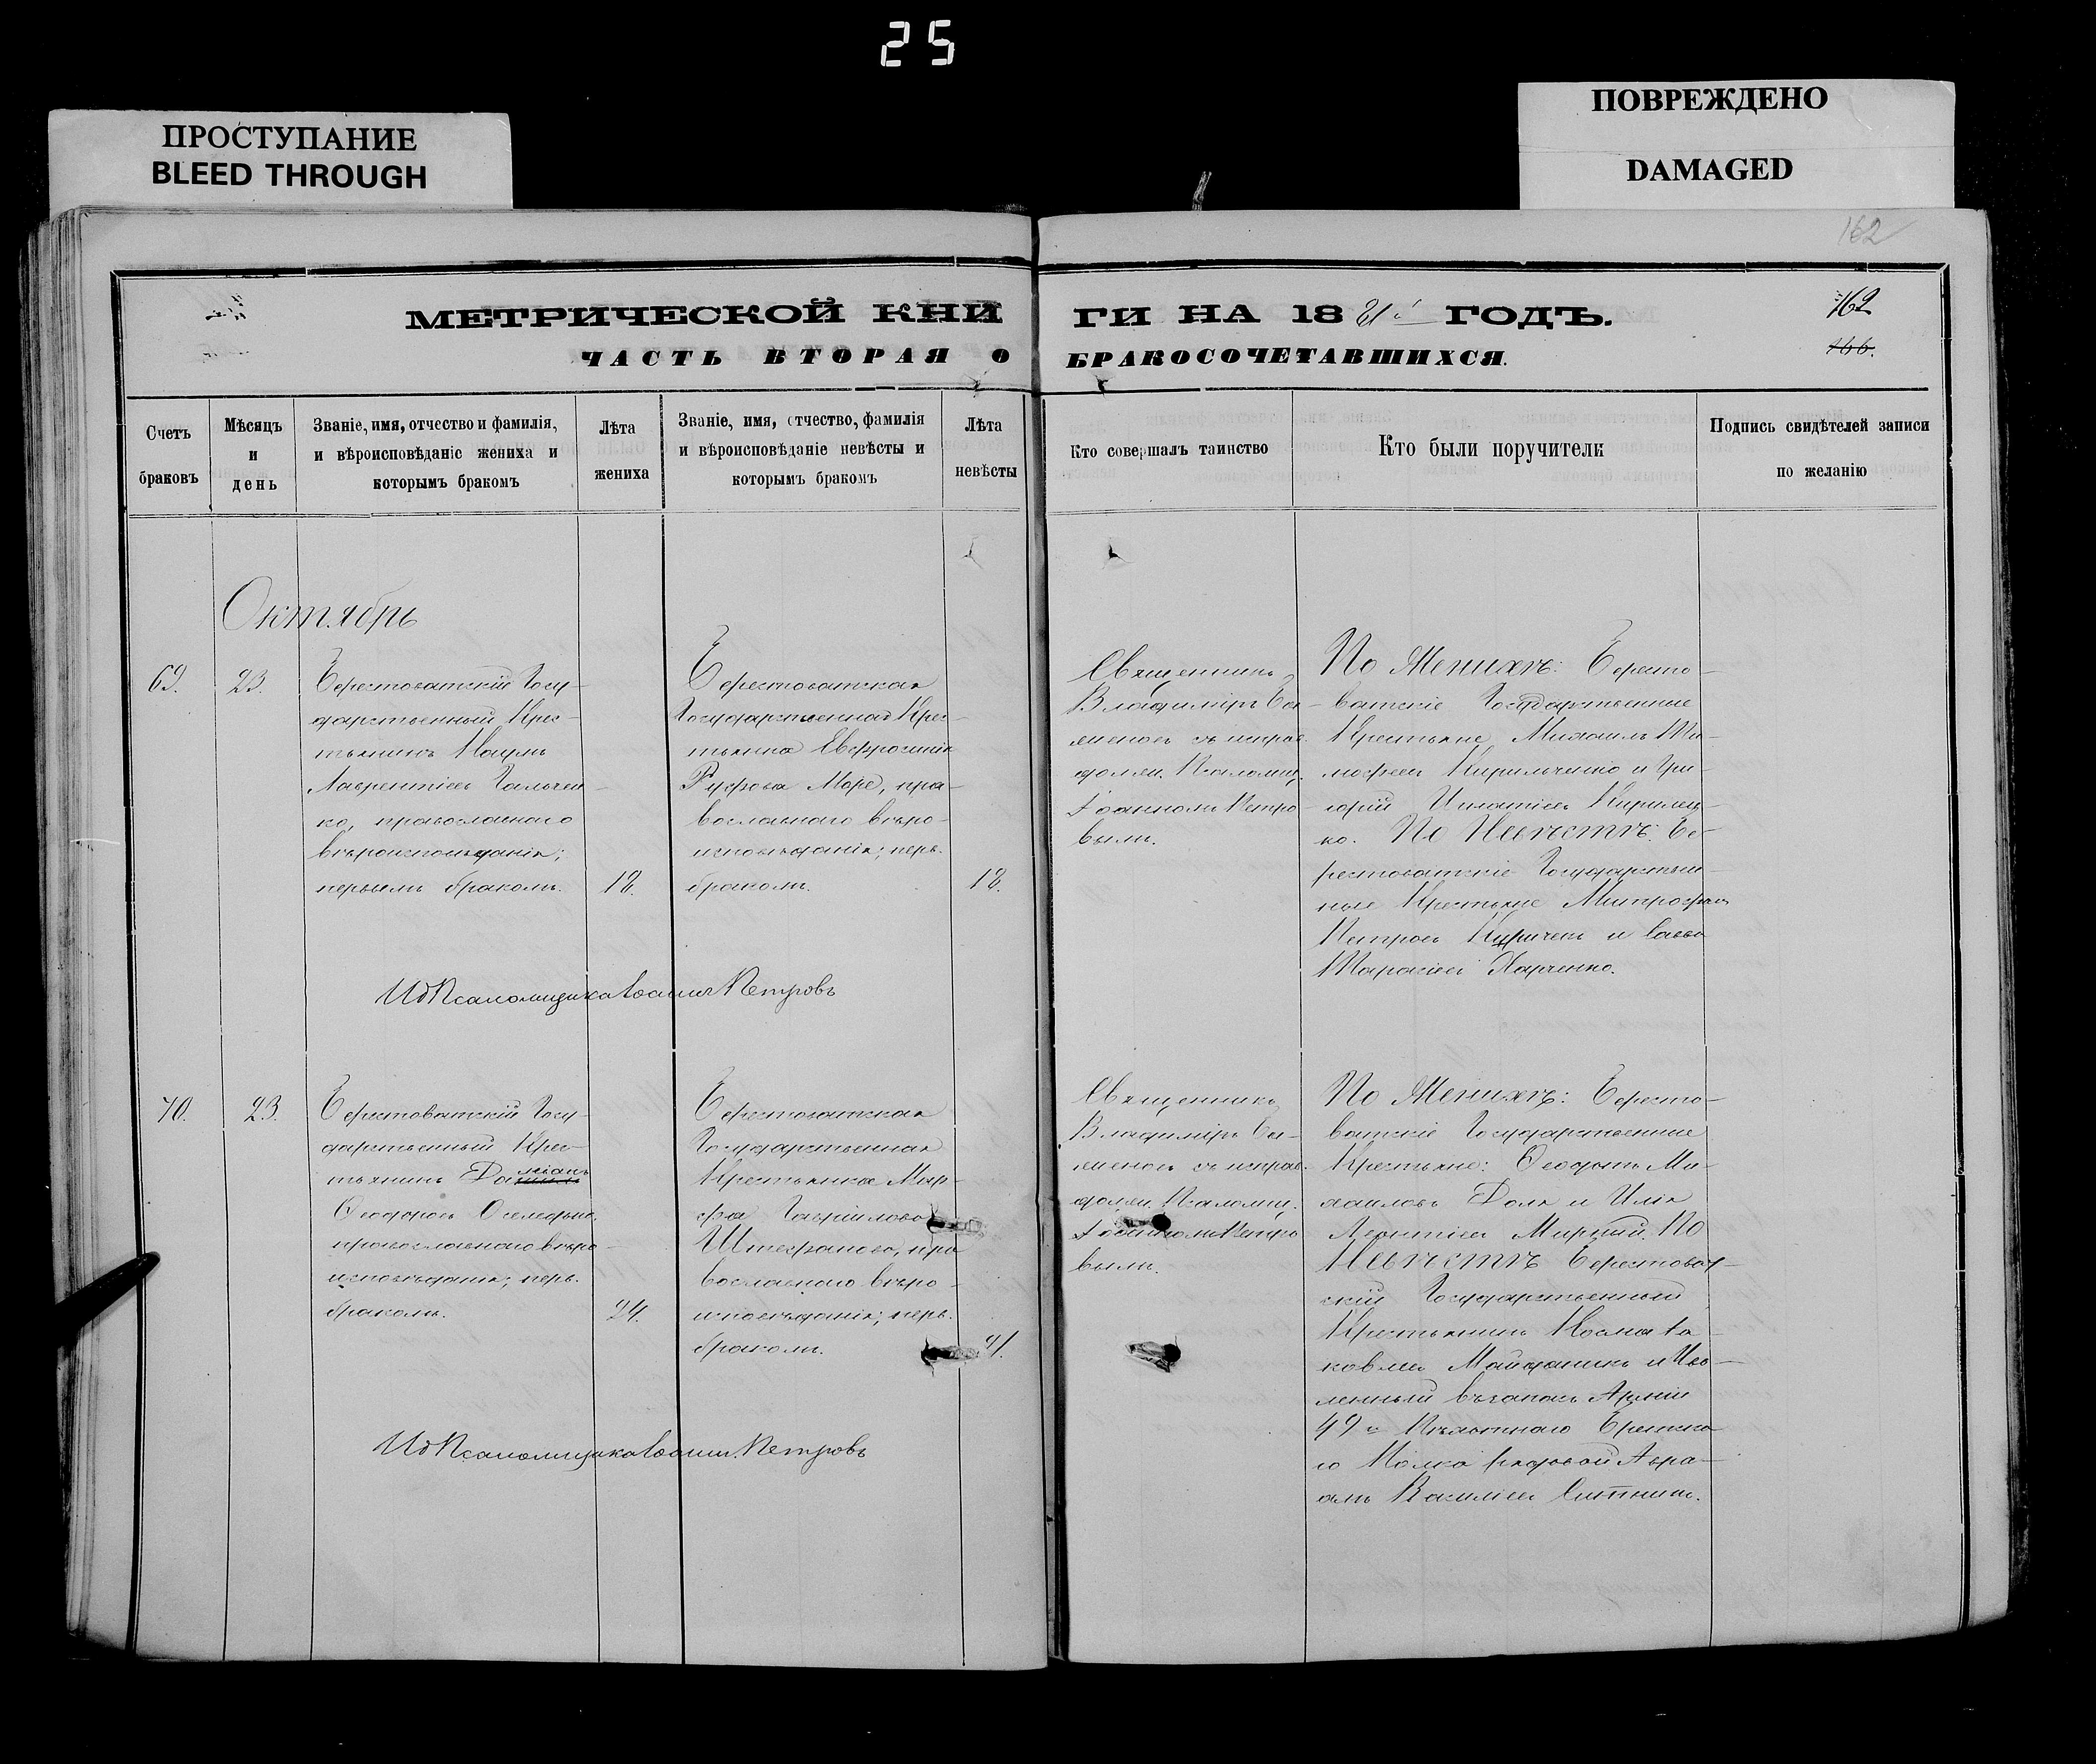 25
ПРОСТУПАНИЕ
BLEED THROUGH
ПОВРЕЖДЕНО
DAMAGED
162
МЕТРИЧЕСКОЙ КНИ
ГИ НА 1881й ГОДЪ.
162
166.
ЧАСТЬ ВТОРАЯ О
БРАКОСОЧЕТАВШИХСЯ.
Счетъ
браковъ
Мѣсяцъ
и
день
Званіе, имя, отчество и фамилія,
и вѣроисповѣданіе жениха и
которымъ бракомъ
Лѣта
жениха
Званіе, имя, отчество, фамилія
и вѣроисповѣданіе невѣсты и
которымъ бракомъ
Лѣта
невѣсты
Кто совершалъ таинство
Кто были поручители
Подпись свидѣтелей записи
по желанію
Октябрь
69.
23.
Берестоватскій Госу-
дарственный Крес-
тьянинъ
Лаврентіевъ Гальчен-
ко, православнаго
вѣроисповѣданія;
первымъ бракомъ.
18.
Берестоватская
Государственная Крес-
тьянка Евфросинія
Руфова Море, пра-
вославнаго вѣро-
исповѣданія; перв.
бракомъ.
18.
Священникъ
Владиміръ Се-
меновъ съ исправ.
должн. Псаломщ.
Іоанномъ Петро-
вымъ.
По Женихѣ: Бересто-
ватскіе Государственные
Крестьяне Михаилъ Ти-
мофеевъ Кирильченко и Гри-
горій Игнатіевъ
ко. По Невѣстѣ: Бе-
рестоватскіе Государствен-
ные Крестьяне Митрофанъ
Петровъ и Савва
Тарасіевъ Харченко.
ИдПсаломщика Іоаннъ Петровъ
70.
23.
Берестоватскій Госу-
дарственный Крес-
тьянинъ Даміанъ
Ѳеодоровъ
православнаго вѣро-
исповѣданія; перв.
бракомъ.
24.
Берестоватская
Государственная
Крестьянка Мар-
фа Гавріилова
Штефанова, пра-
вославнаго вѣро-
исповѣданія; перв.
бракомъ.
21.
Священникъ
Владиміръ Се-
меновъ съ исправ.
должн. Псаломщ.
Іоанномъ Петро-
вымъ.
По Женихѣ: Бересто-
ватскіе Государственные
Крестьяне: Ѳеодотъ Ми-
хаиловъ Доля и Илія
Леонтіевъ Мирный. По
Невѣстѣ Берестоват-
скій Государственный
Крестьянинъ Косма Іа-
ковлевъ Майданикъ и Уво-
ленный въ запасъ Арміи
49го Пѣхотнаго Брестска-
го Полка рядовой Авра-
амъ Василіевъ Ситникъ.
ИдПсаломщика Іоаннъ Петровъ